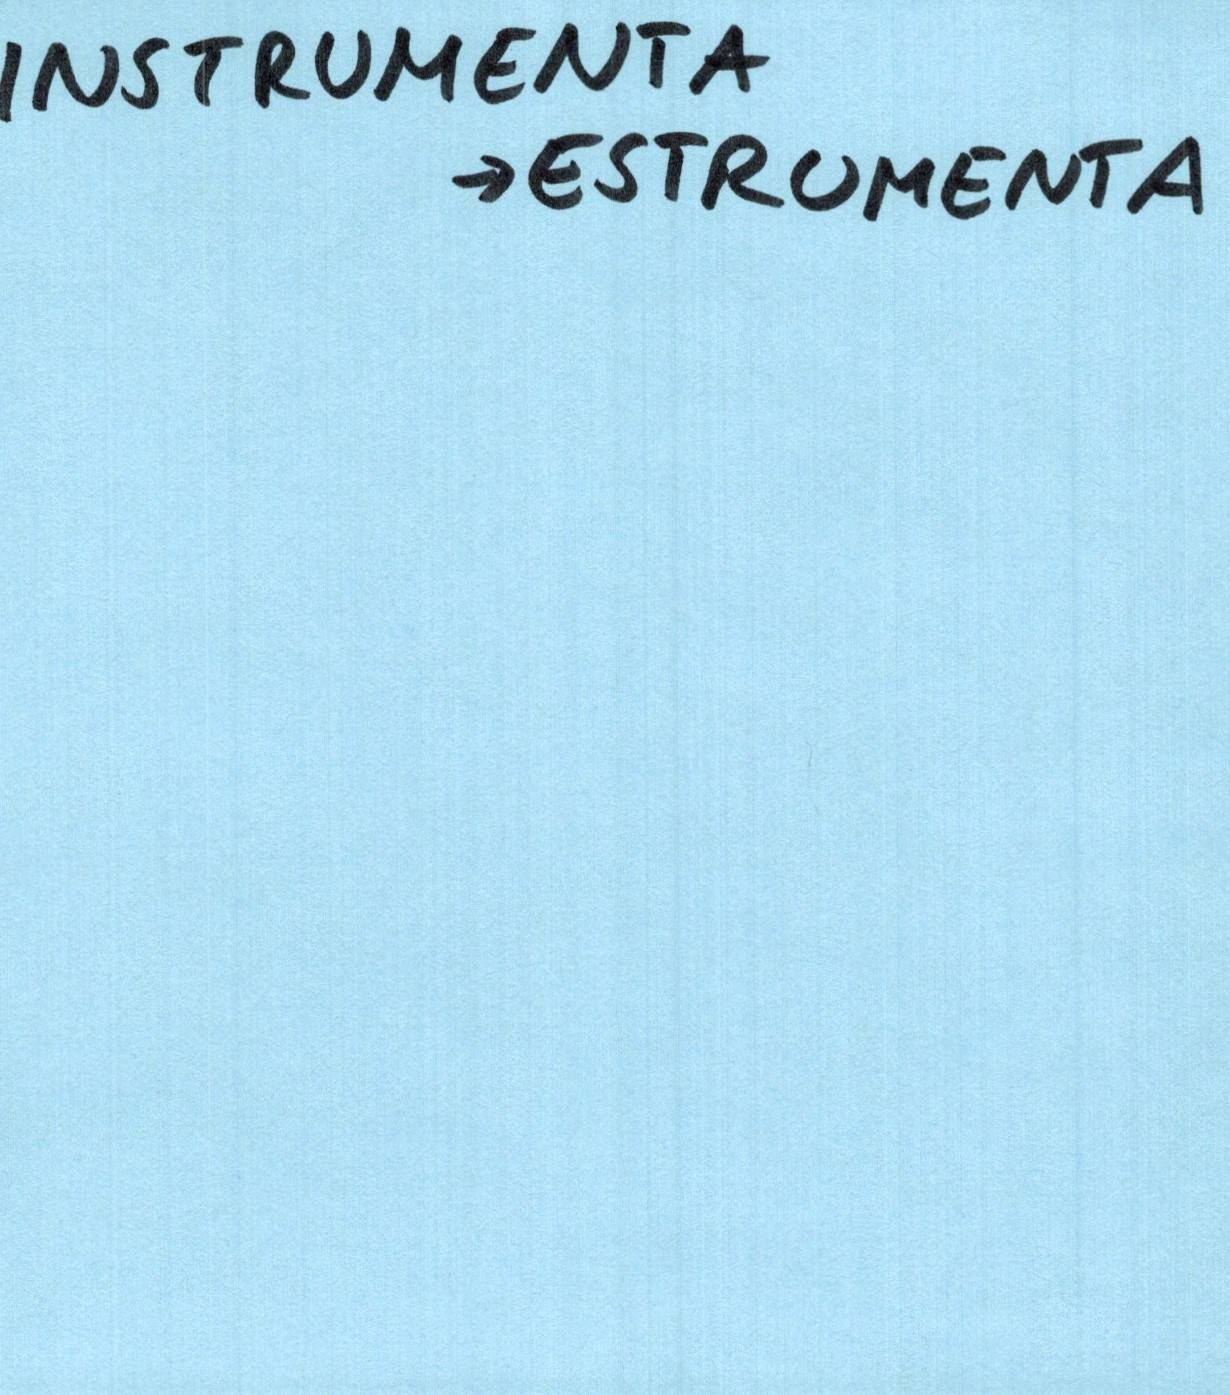 INSTRUMENTA
→ESTRUMENTA